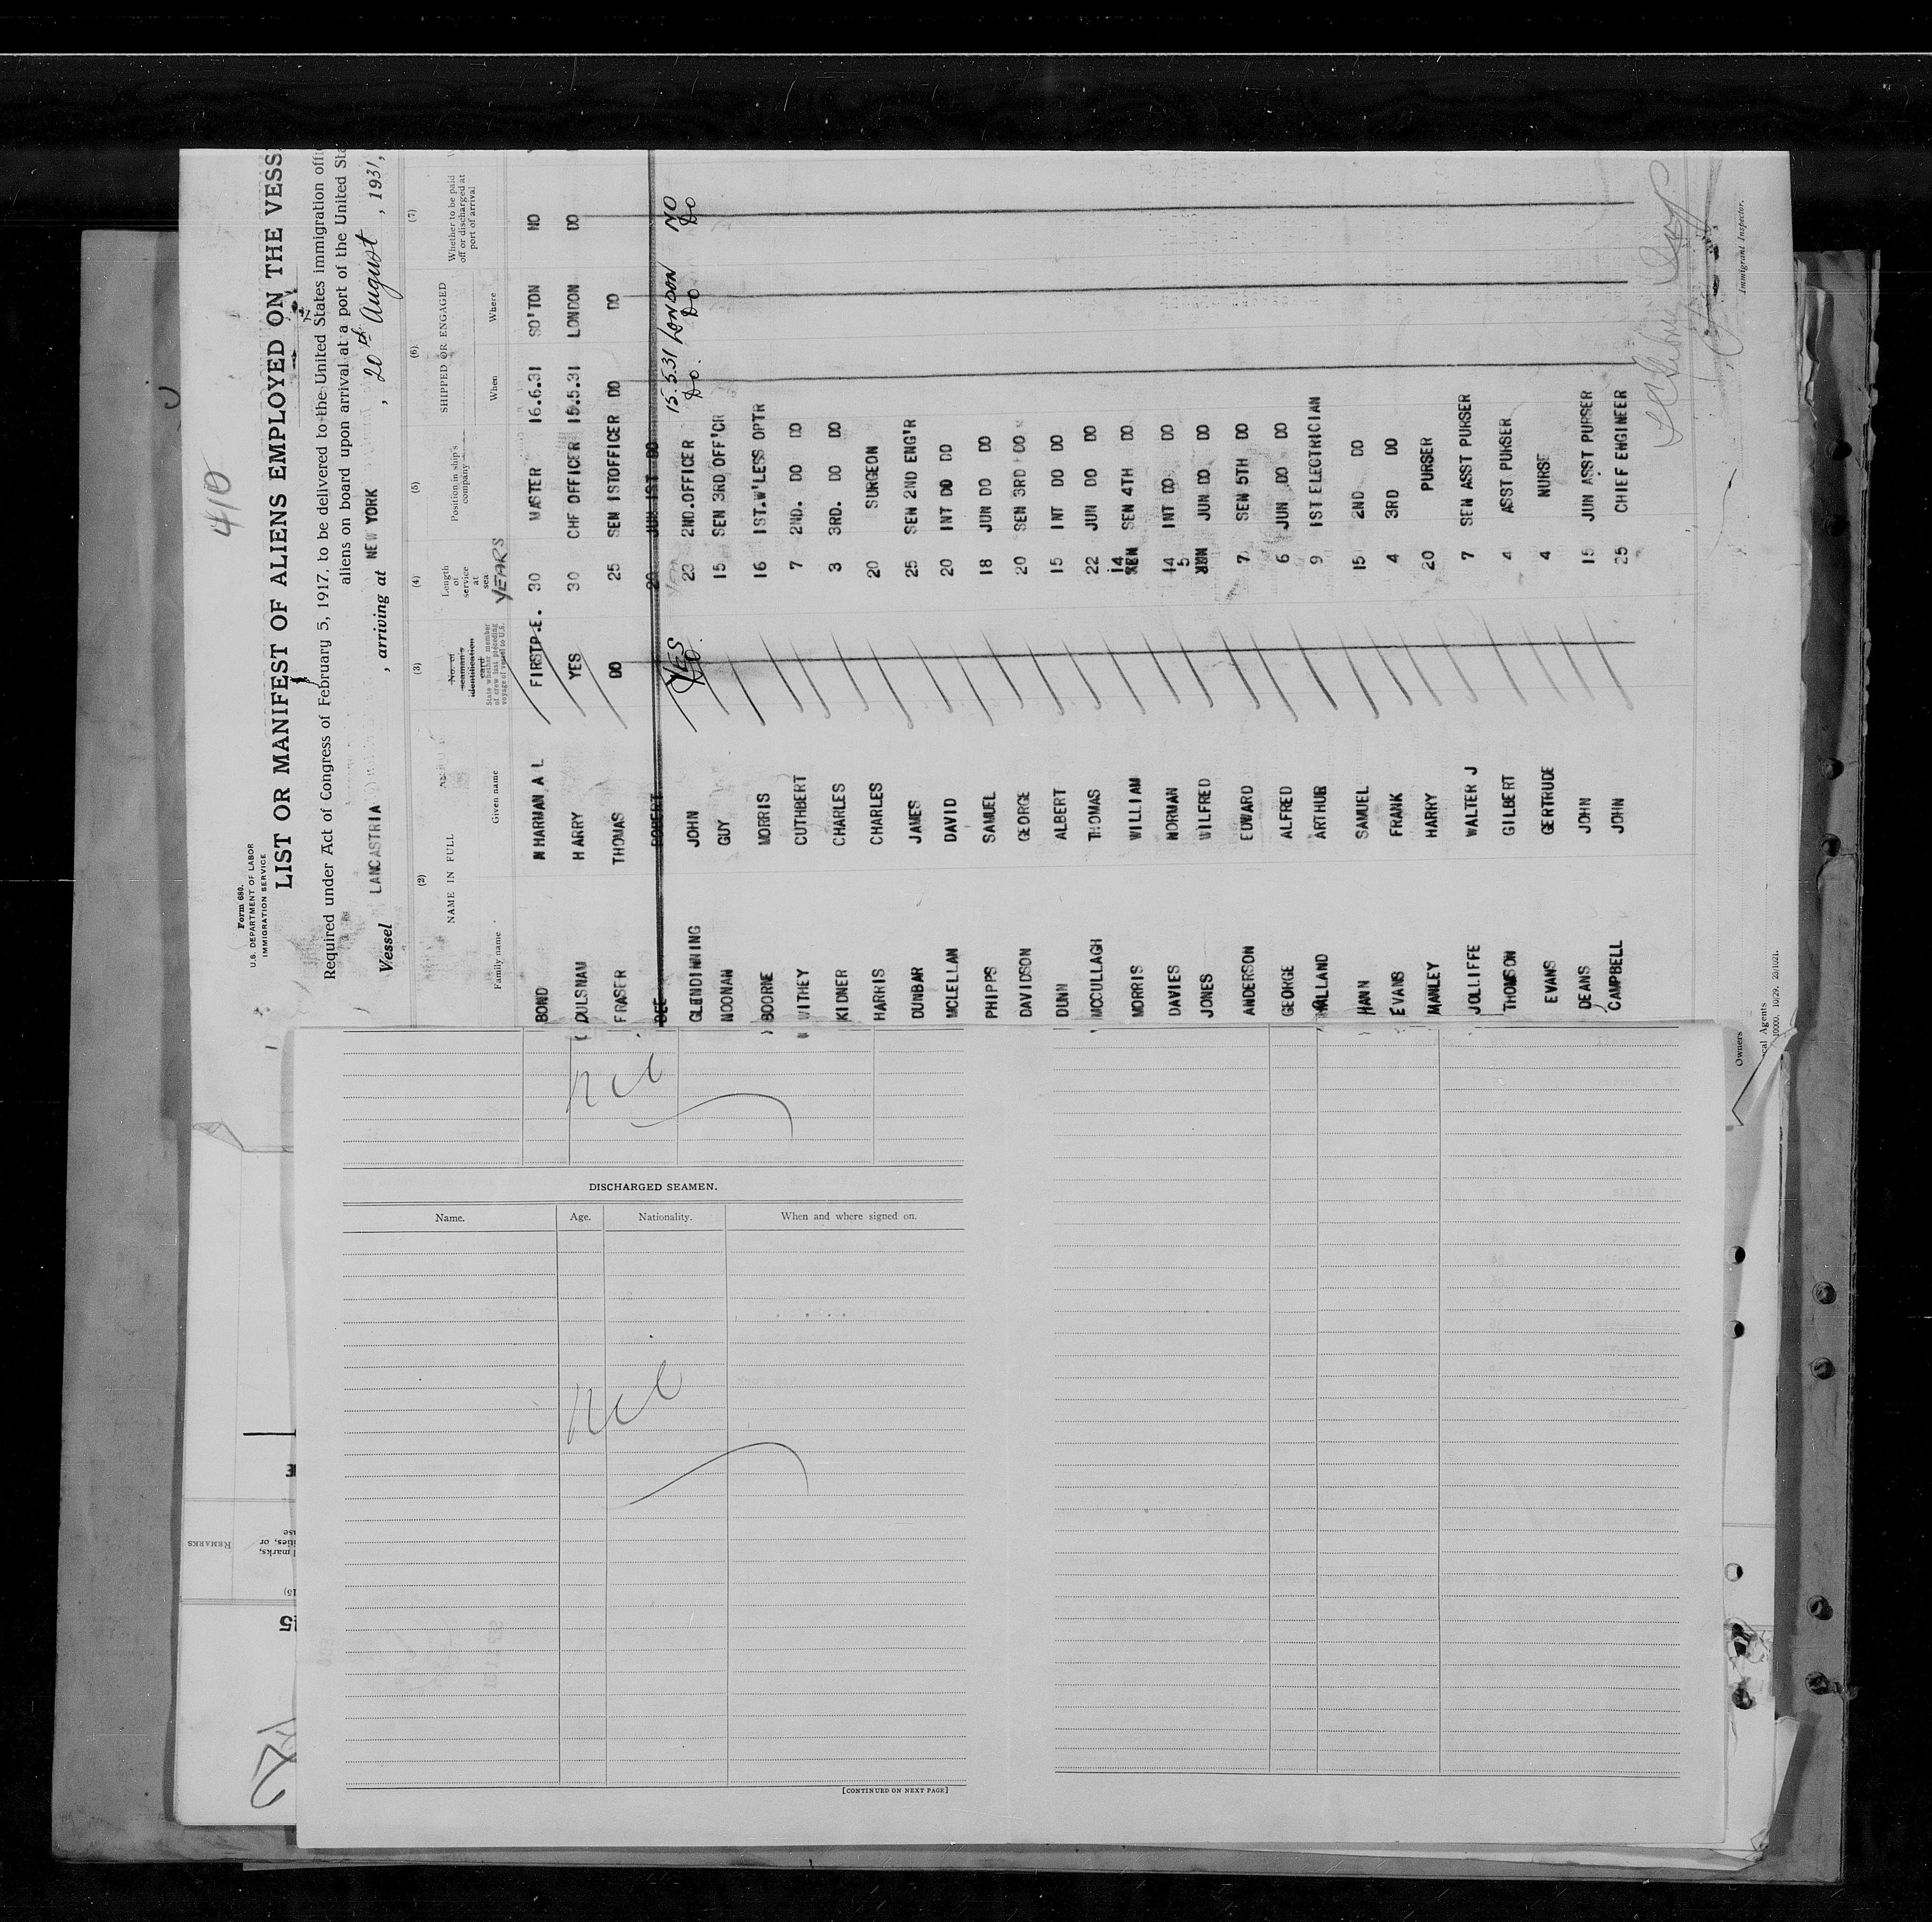 410
Form 680.
U.S. DEPARTMENT OF LABOR
IMMIGRATION SERVICE
LIST OR MANIFEST OF ALIENS EMPLOYED ON THE VESS
Required under Act of Congress of February 5, 1917, to be delivered to the United States immigration offi
aliens on board upon arrival at a port of the United Sta
Vessel LANCASTRIA, arriving at NEW YORK, 20th August, 1931,
(2) (3) (4) (5) (6) (7)
NAME IN FULL
Family name Given name
No. of seaman's identification card
State whether member of crew last preceding voyage of vessel to U.S.
Length of service at sea
YEARS
Position in ship's company
SHIPPED OR ENGAGED
When Where
Whether to be paid off or discharged at port of arrival
BOND NHARMAN A L FIRST P.E. 30 MASTER 16.6.31 SO'TON NO
DULSNAM HARRY YES 30 CHF OFFICER 15.5.31 LONDON DO
FRASER THOMAS DO 25 SEN 1STOFFICER DO DO
DEE ROBERT 20 JUN 1ST DO
GLENDINNING JOHN YES 23 2ND.OFFICER 15.5.31 LONDON NO
NOONAN GUY DO 15 SEN 3RD OFF'CR DO. DO DO
BOORNE MORRIS 16 1ST.W'LESS OPTR
WITHEY CUTHBERT 7 2ND. DO DO
KIDNER CHARLES 3 3RD. DO DO
HARRIS CHARLES 20 SURGEON
DUNBAR JAMES 25 SEN 2ND ENG'R
MCLELLAN DAVID 20 INT DO DO
PHIPPS SAMUEL 18 JUN DO DO
DAVIDSON GEORGE 20 SEN 3RD DO
DUNN ALBERT 15 INT DO DO
MCCULLAGH THOMAS 22 JUN DO DO
MORRIS WILLIAM 14 SEN 4TH DO
DAVIES NORMAN 14 INT DO DO
JONES WILFRED 5 JUN DO DO
ANDERSON EDWARD 7 SEN 5TH DO
GEORGE ALFRED 6 JUN DO DO
ARTHUR 9 1ST ELECTRICIAN
HANN SAMUEL 15 2ND DO
EVANS FRANK 4 3RD DO
MANLEY HARRY 20 PURSER
JOLLIFFE WALTER J 7 SEN ASST PURSER
THOMSON GILBERT 4 ASST PURSER
EVANS GERTRUDE 4 NURSE
DEANS JOHN 15 JUN ASST PURSER
CAMPBELL JOHN 25 CHIEF ENGINEER
Immigrant Inspector.
Owners
cal Agents
10000. 10/29. 23/1021.
nil
DISCHARGED SEAMEN.
Name. Age. Nationality. When and where signed on.
nil
[CONTINUED ON NEXT PAGE]
REMARKS